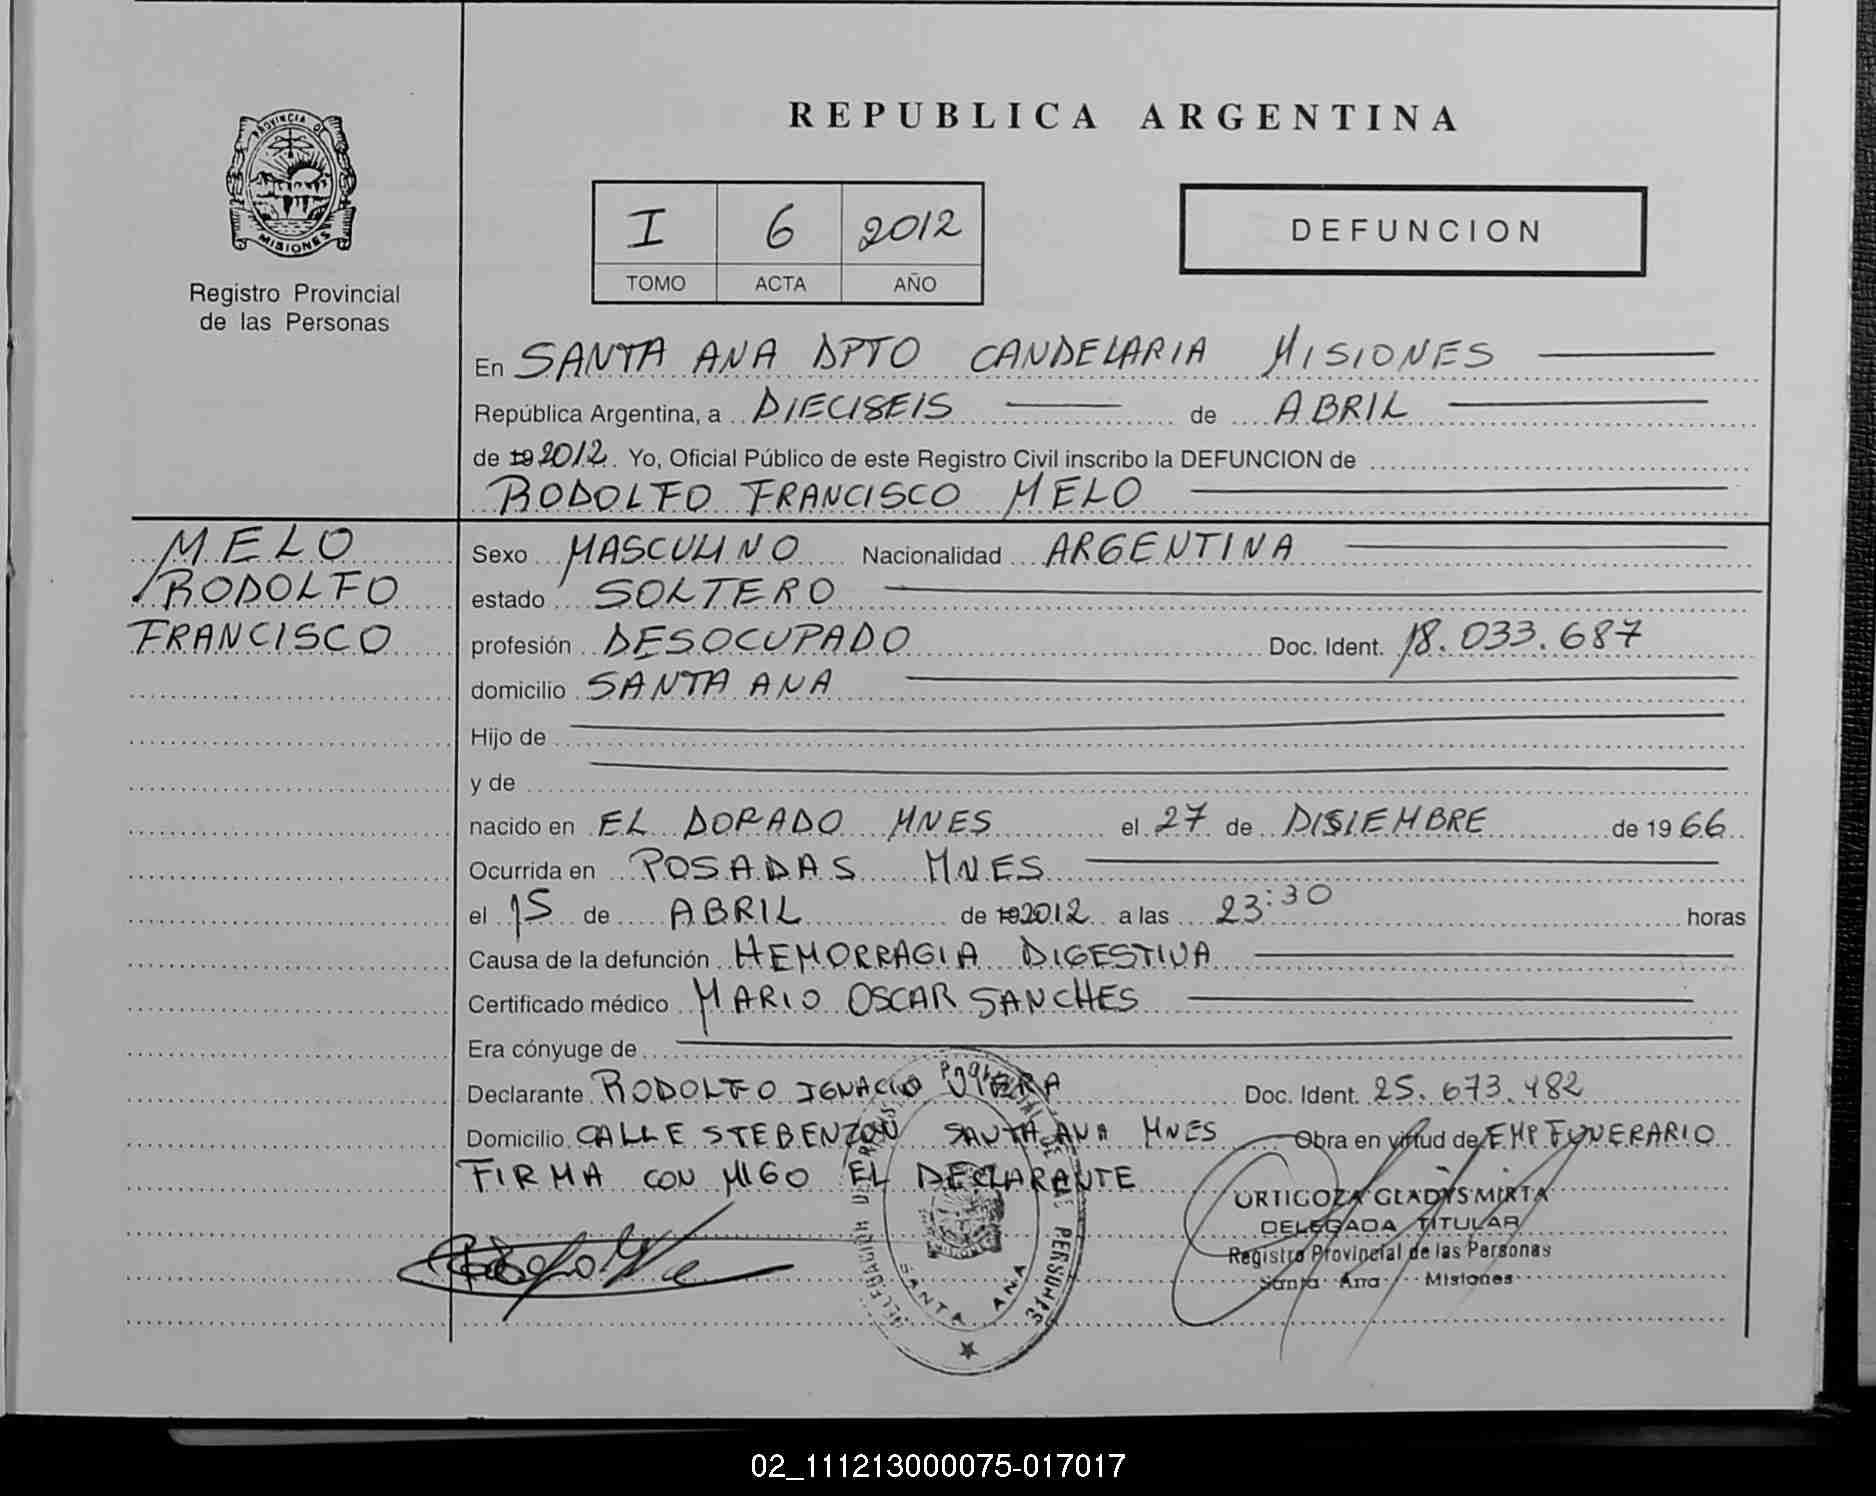 PROVINCIA DE
MISIONES
Registro Provincial
de las Personas
REPUBLICA ARGENTINA
I 6 2012
TOMO ACTA AÑO
DEFUNCION
En SANTA ANA DPTO CANDELARIA MISIONES
República Argentina, a DIECISEIS de ABRIL
de 19 2012 Yo, Oficial Público de este Registro Civil inscribo la DEFUNCION de
RODOLFO FRANCISCO MELO
MELO
RODOLFO
FRANCISCO
Sexo MASCULINO Nacionalidad ARGENTINA
estado SOLTERO
profesión DESOCUPADO Doc. Ident. 18.033.687
domicilio SANTA ANA
Hijo de
y de
nacido en EL DORADO MNES el 27 de DISIEMBRE de 1966
Ocurrida en POSADAS MNES
el 15 de ABRIL de 19 2012 a las 23:30 horas
Causa de la defunción HEMORRAGIA DIGESTIVA
Certificado médico MARIO OSCAR SANCHES
Era cónyuge de
Declarante RODOLFO IGNACIO VIERA Doc. Ident. 25.673.482
Domicilio CALLE STEBENZON SANTA ANA MNES Obra en virtud de EMP FUNERARIO
FIRMA CON MIGO EL DECLARANTE
ORTIGOZA GLADYS MIRTA
DELEGADA TITULAR
Registro Provincial de las Personas
Santa Ana Misiones
SANTA ANA
02_111213000075-017017